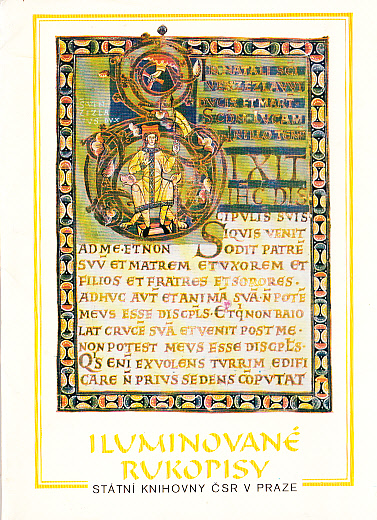 DIXIT
CIPULIS SUIS
SIQUIS VENIT
AD ME·ET NON ODIT PATRĒ
SVŪ ET MATREM ET VXOREM ET
FILIOS ET FRATRES ET SORORES·
ADHVC AVT ET ANIMĀ SVĀ·N̄ POTE
MEVS ESSE DISCPLS·ET Q̄ NON BAIO
LAT CRVCĒ SVĀ ET VENIT POST ME·
NON POTEST MEVS ESSE DISCPLS·
QS ENĪ EX VOLENS TVRRIM EDIFI
CARE N̄ PRIUS SEDENS CŌPVTAT
ILUMINOVANÉ
RUKOPISY
STÁTNÍ KNIHOVNY ČSR V PRAZE